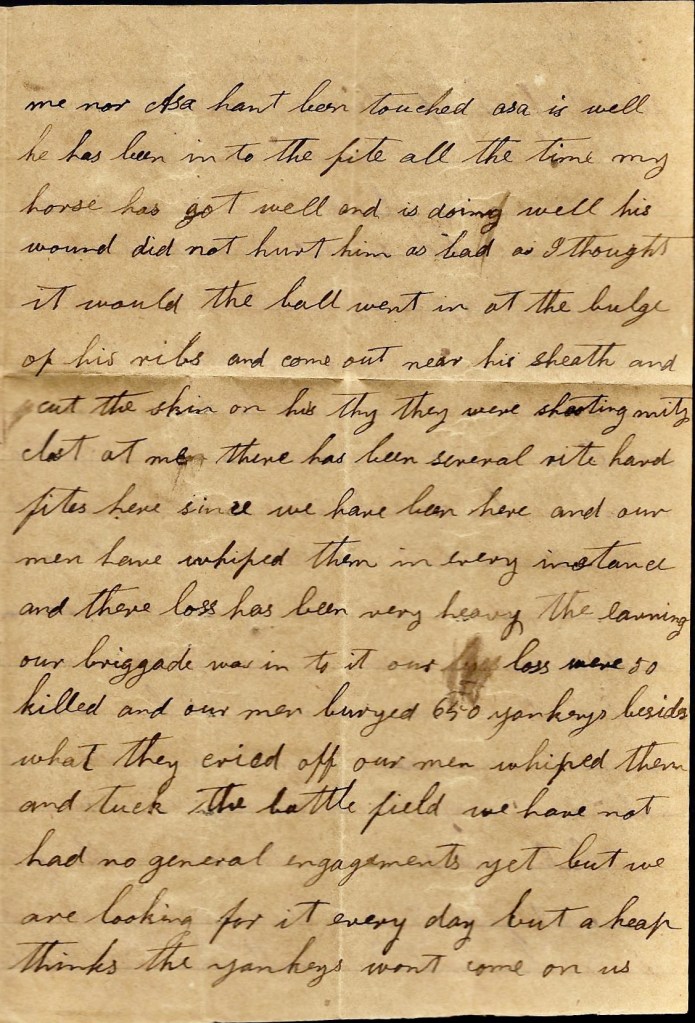 me nor Asa hant been touched asa is well
he has been in to the fite all the time my
horse has got well and is doing well his
wound did not hurt him as bad as I thought
it would the ball went in at the bulge
of his ribs and come out near his sheath and
cut the skin on his thy they were shooting mity
clost at me there has been several rite hard
fites here since we have been here and our
men have whiped them in every instance
and there loss has been very heavy the evening
our briggade was in to it our loss were 50
killed and our men buryed 650 yankeys besides
what they cried off our men whiped them
and tuck the battle field we have not
had no general engagements yet but we
are looking for it every day but a heap
thinks the yankeys wont come on us